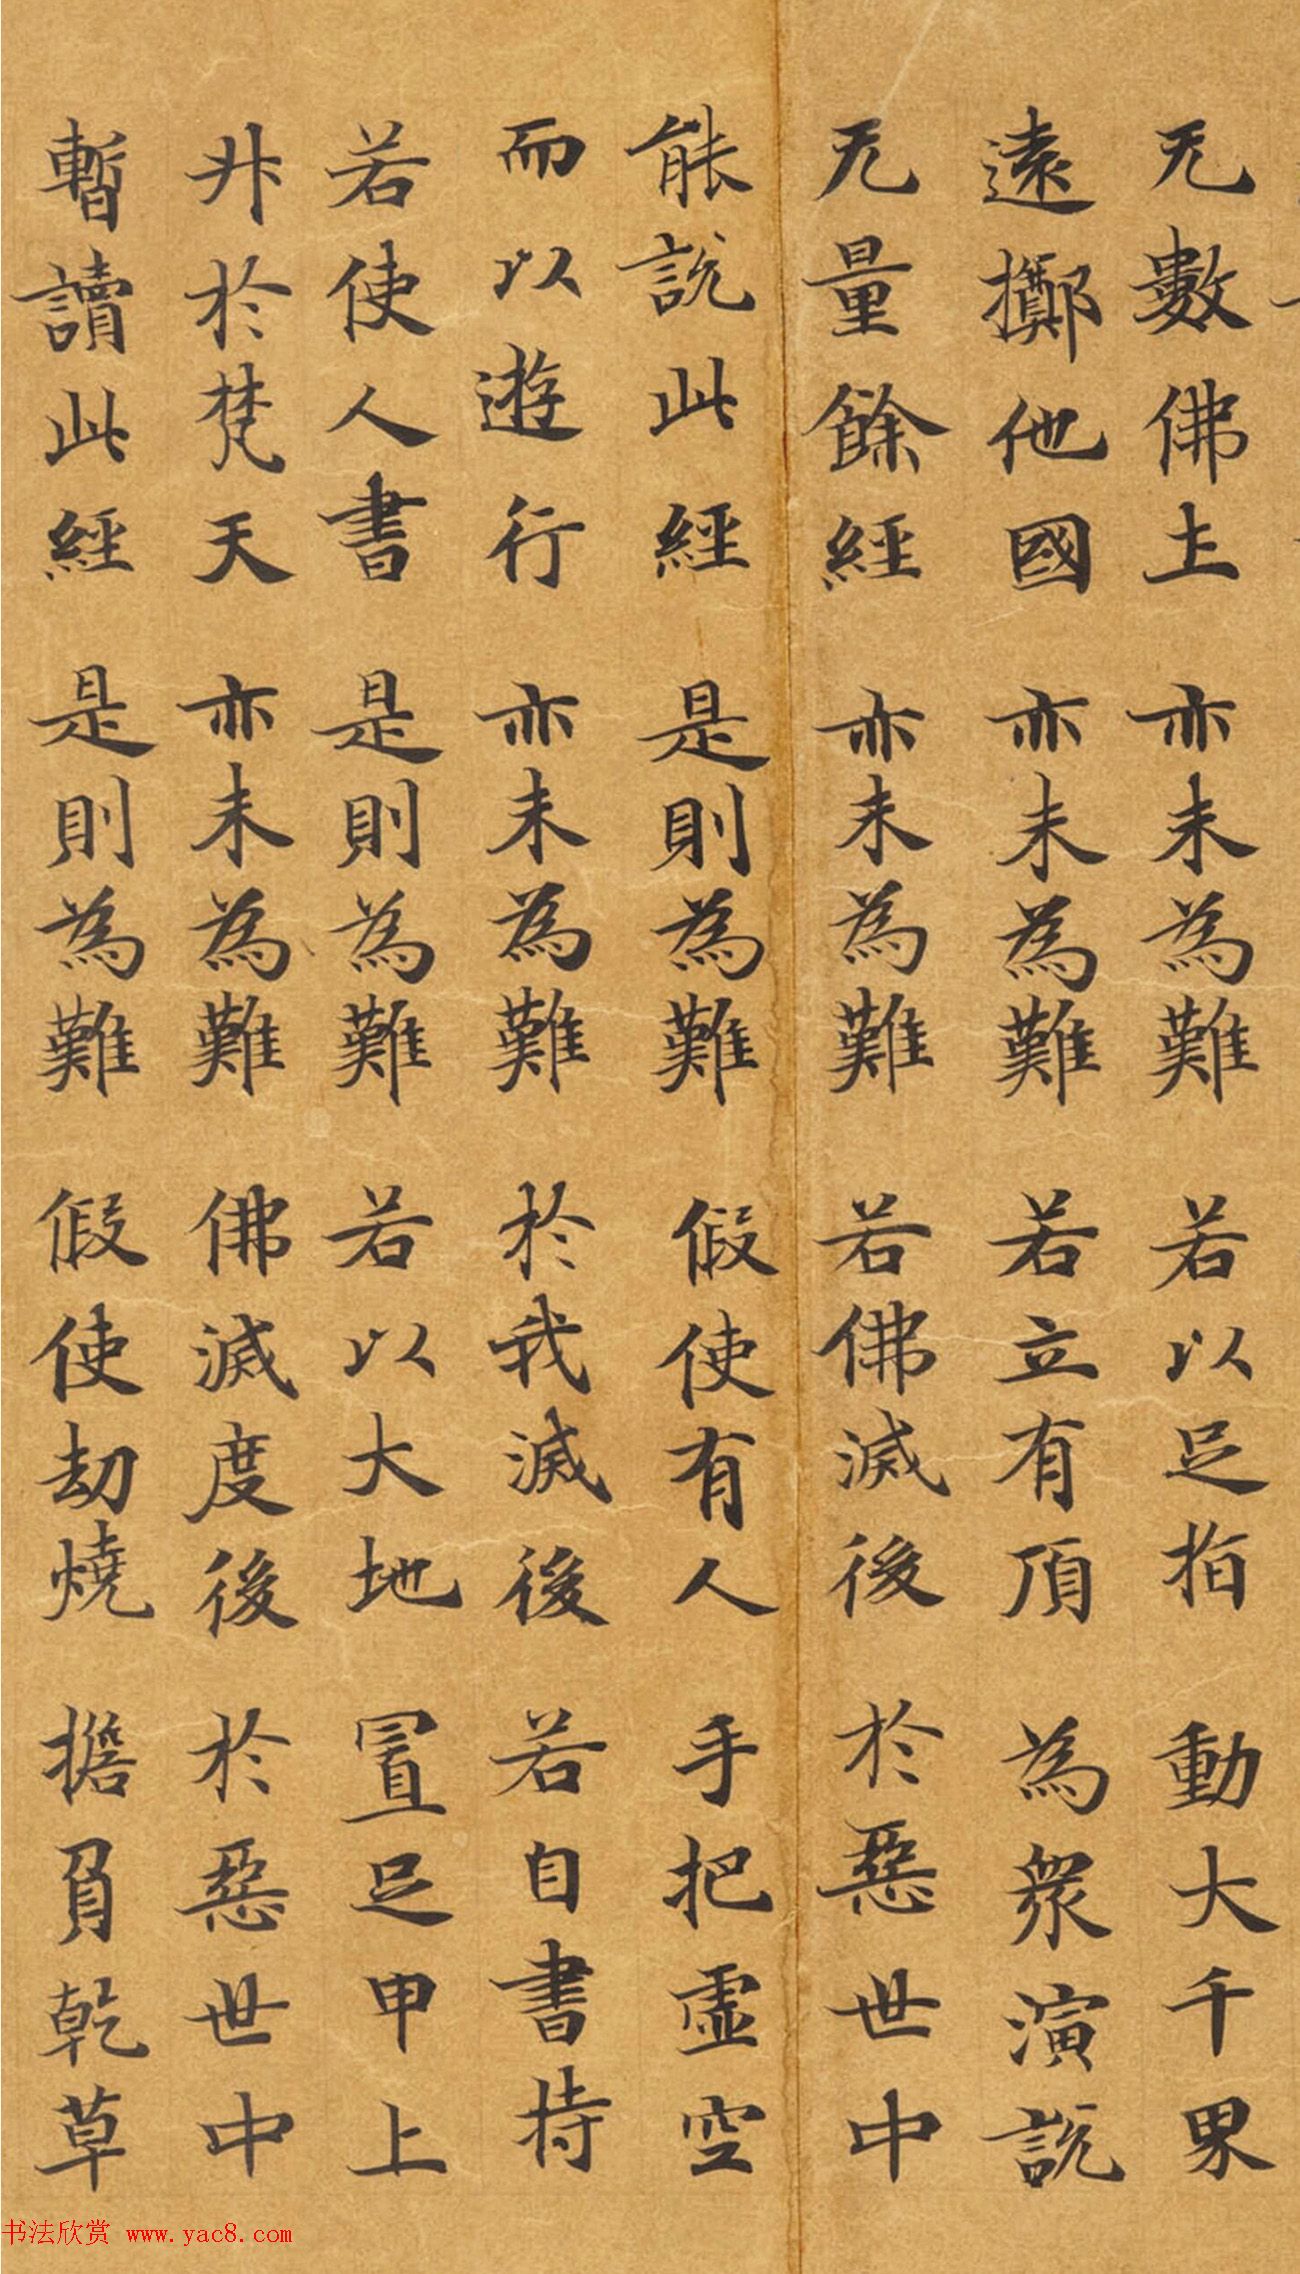 无數佛土 亦未為難 若以足指 動大千界
遠擲他國 亦未為難 若立有頂 為眾演說
无量餘經 亦未為難 若佛滅後 於惡世中
能說此經 是則為難 假使有人 手把虛空
而以遊行 亦未為難 於我滅後 若自書持
若使人書 是則為難 若以大地 置足甲上
升於梵天 亦未為難 佛滅度後 於惡世中
暫讀此經 是則為難 假使劫燒 擔負乾草
书法欣赏 www.yac8.com